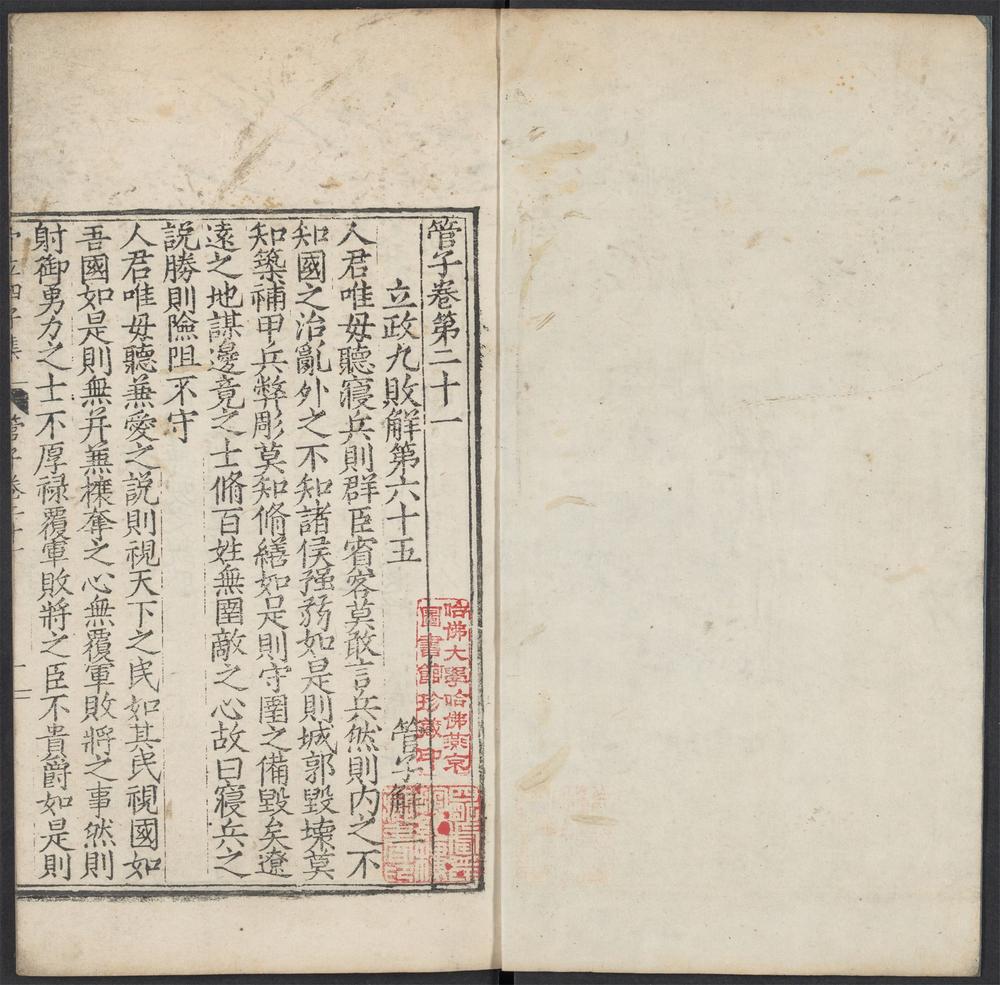 管子卷第二十一
立政九敗解第六十五
管子解
人君唯毋聽寢兵則群臣賓客莫敢言兵然則內之不
知國之治亂外之不知諸侯强弱如是則城郭毀壞莫
知築補甲兵弊彫莫知脩繕如是則守圉之備毀矣遼
遠之地謀邊竟之士脩百姓無圉敵之心故曰寢兵之
説勝則險阻不守
人君唯毋聽兼愛之説則視天下之民如其民視國如
吾國如是則無并兼攘奪之心無覆軍敗將之事然則
射御勇力之士不厚祿覆軍敗將之臣不貴爵如是則
管子卷二十一
哈佛大學哈佛燕京
圖書館珍藏印